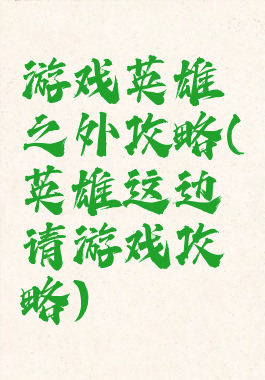 游戏英雄
之外攻略(
英雄这边
请游戏攻
略)